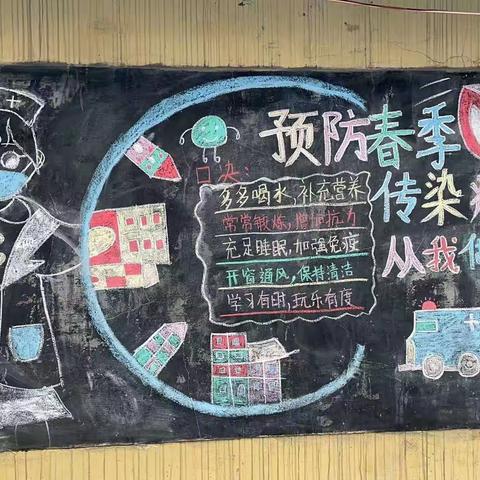 预防春季
传染
从我
口决:
多多喝水,补充营养
常常锻炼,增加抗力
充足睡眠,加强免疫
开窗通风,保持清洁
学习有时,玩乐有度